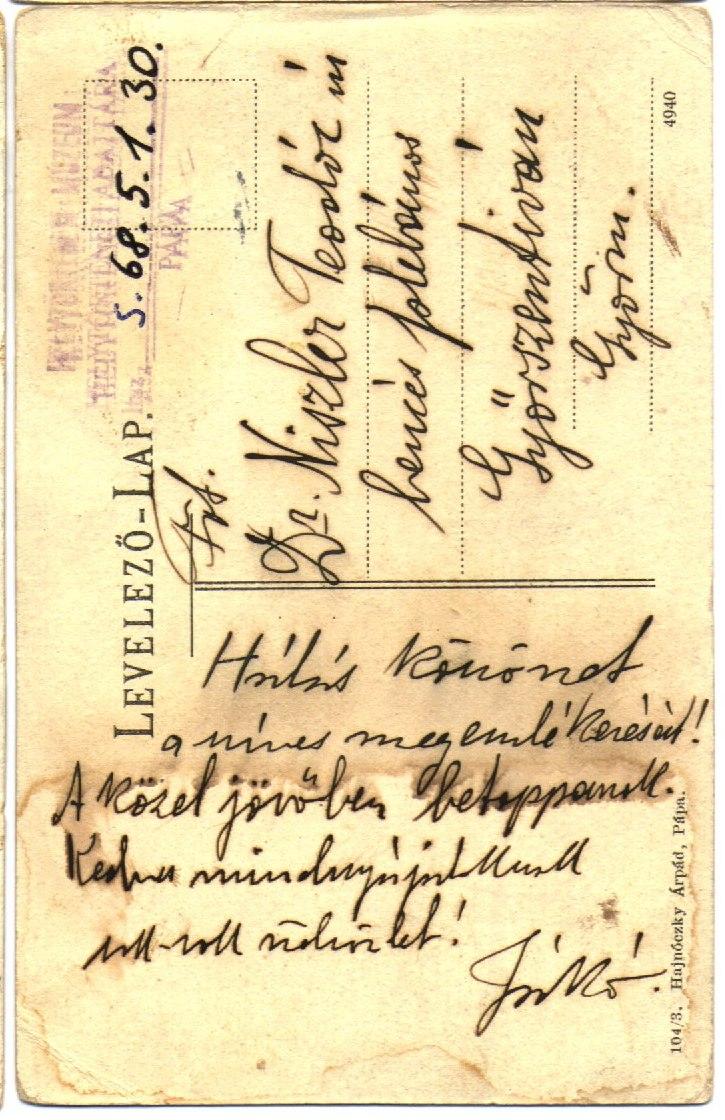 LEVELEZŐ-LAP.
HELYTÖRTÉNETI ADATTÁRA
PÁPA
S. 68. 5. 1. 30.
Dr. Niszler Teodóz
bencés plebános
Győrszentiván
Győrm.
Hálás köszönet
a szíves megemlékezésért!
A közel jövőben betoppanok.
Kedves mindnyájuknak
sok-sok üdvözlet!
Jákó.
4940
104/3. Hajnóczky Árpád, Pápa.